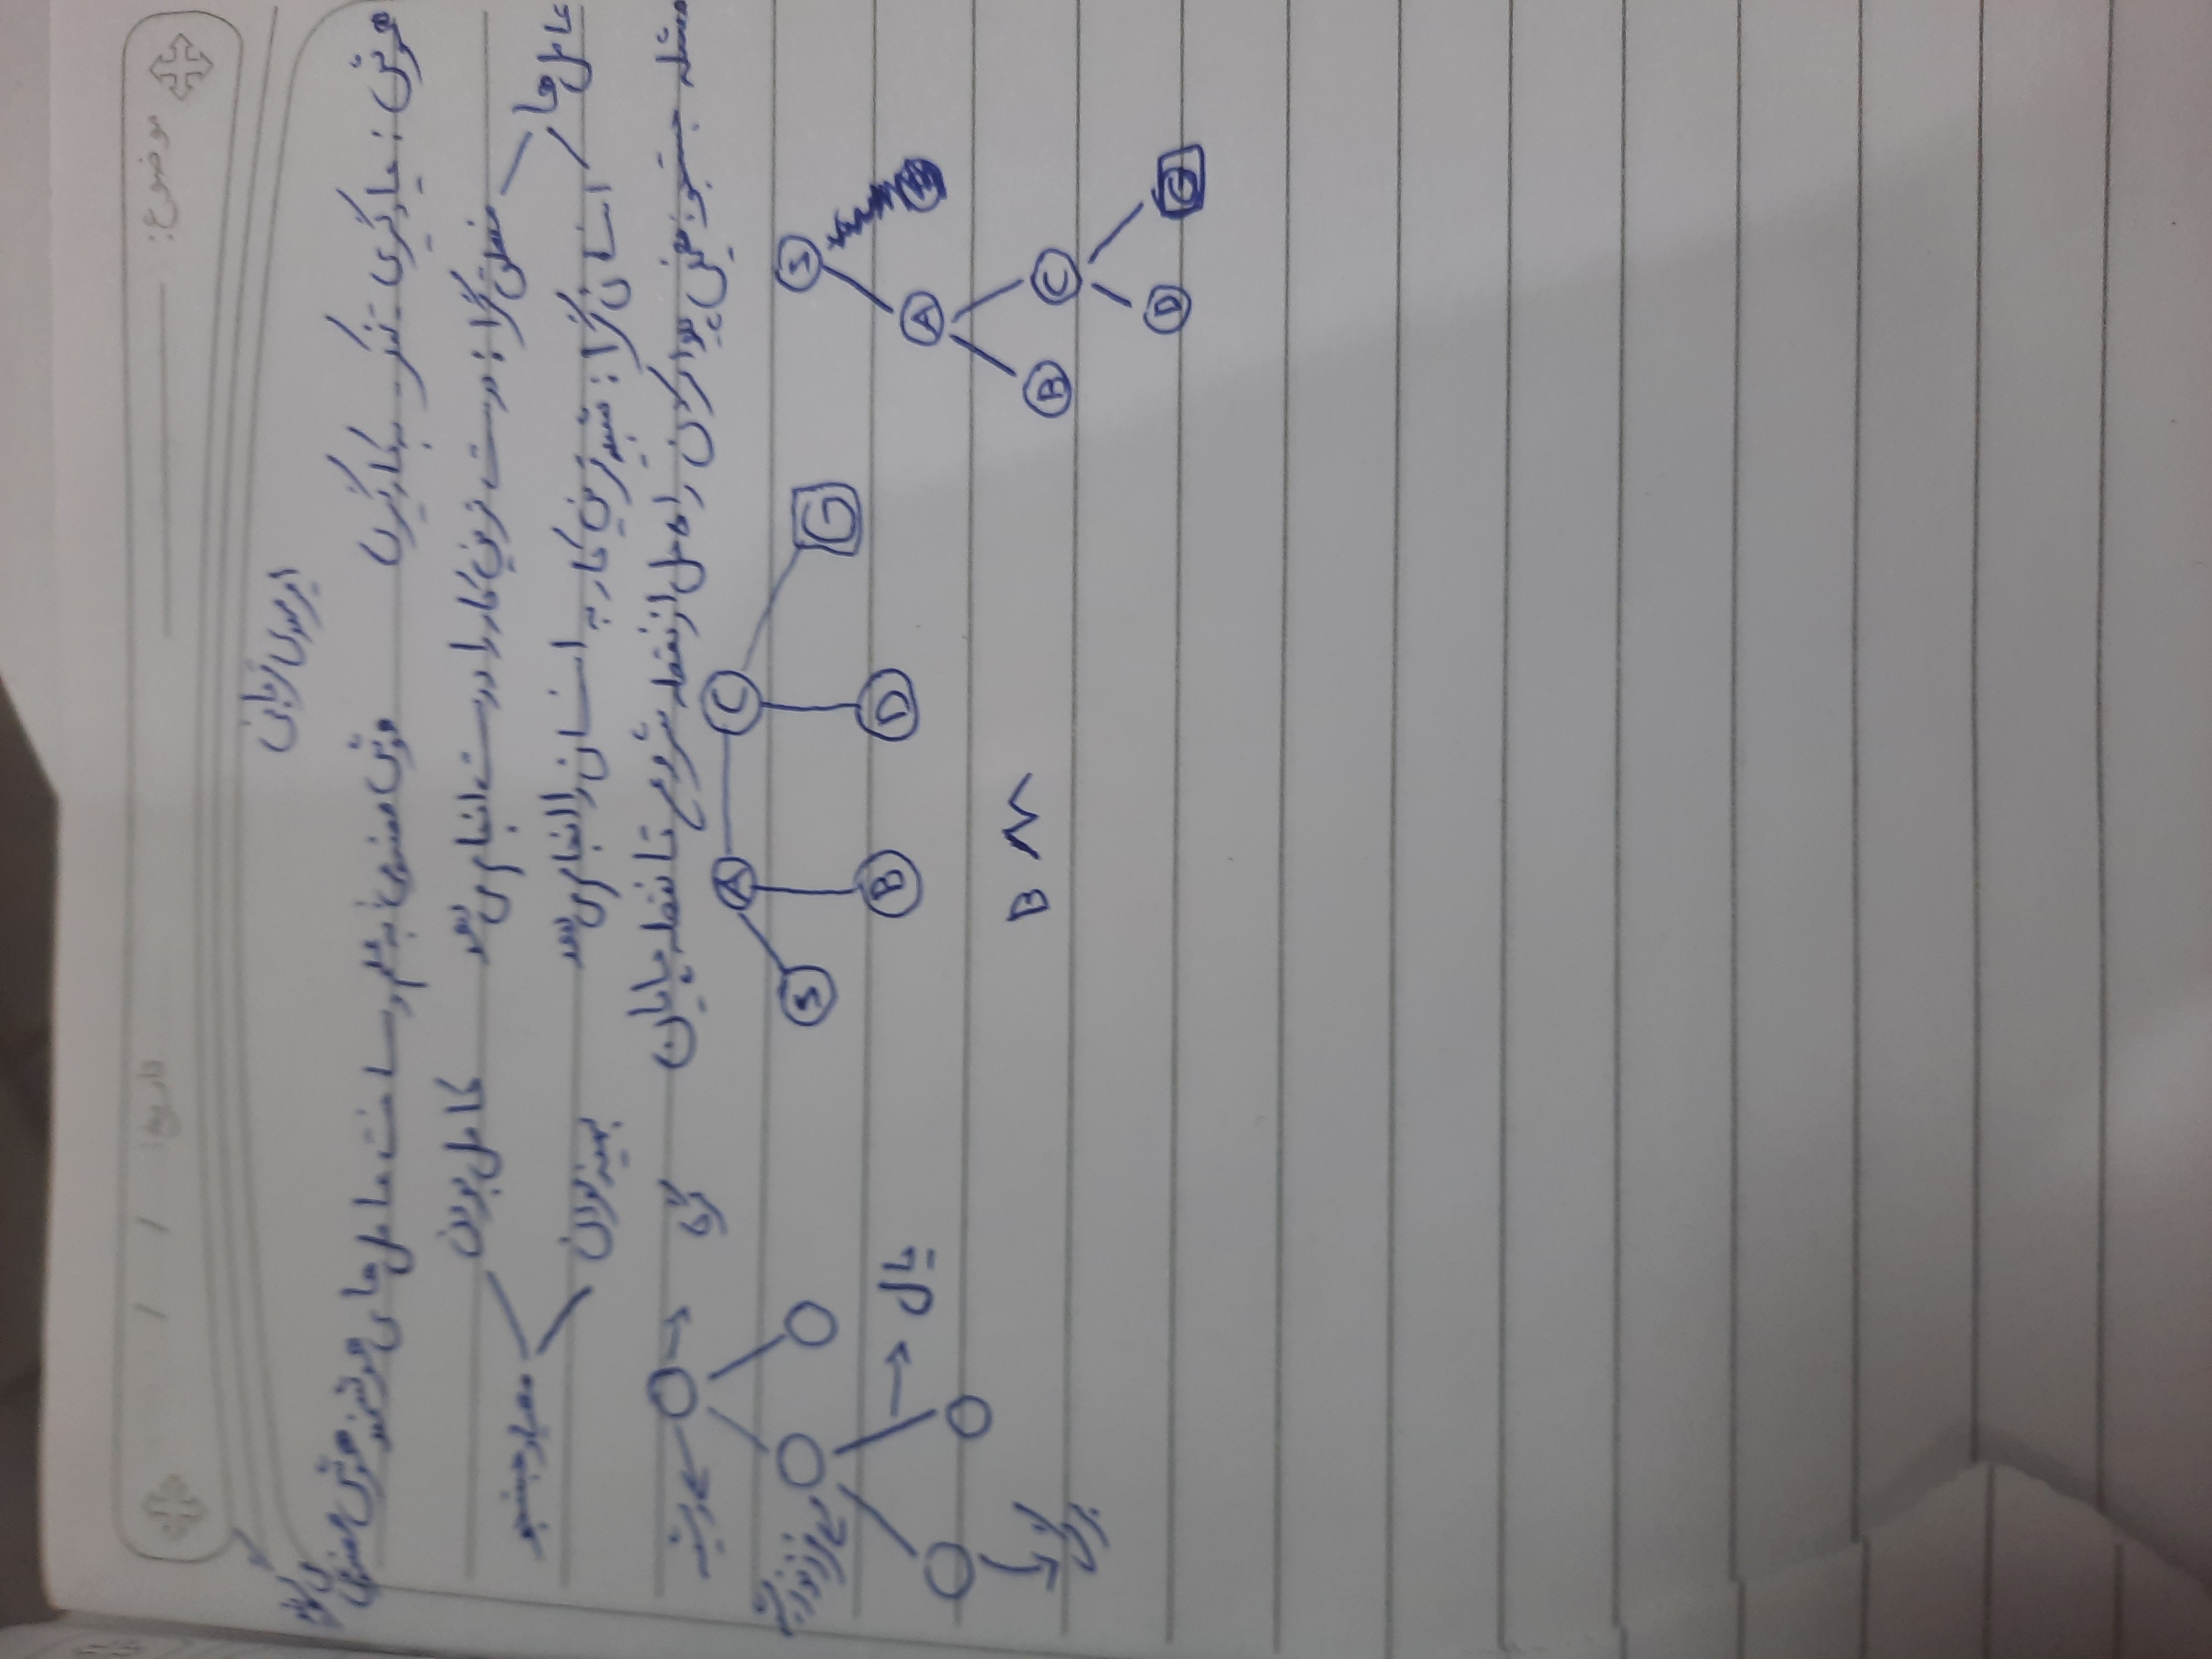 موضوع: تاریخ: / /
امیرمهدی قربانی
هوش: یادگیری - تفکر - به کارگیری هوش مصنوعی: به علم و ساخت عامل های هوشمند هوش مصنوعی می گویند
عامل ها
منطق گرا: درست ترین کار را درست انجام می دهد
انسان گرا: شبیه ترین کار به انسان را انجام می دهد
معیار جستجو
کامل بودن
بهینه بودن
مسئله جستجو: یعنی پیدا کردن راه حل از نقطه شروع تا نقطه پایان
S
A
B C
D G
A C
S G
B D
B
ریشه گره
فرزند ریشه
یال
برگ